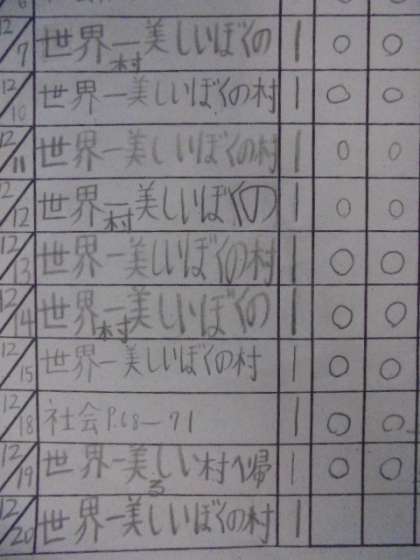 12/7 世界一美しいぼくの村 1 ○ ○
12/10 世界一美しいぼくの村 1 ○ ○
12/11 世界一美しいぼくの村 1 ○ ○
12/12 世界一美しいぼくの村 1 ○ ○
12/13 世界一美しいぼくの村 1 ○ ○
12/14 世界一美しいぼくの村 1 ○ ○
12/15 世界一美しいぼくの村 1 ○ ○
12/18 社会P.68-71 1 ○ ○
12/19 世界一美しい村へ帰る 1 ○ ○
12/20 世界一美しいぼくの村 1